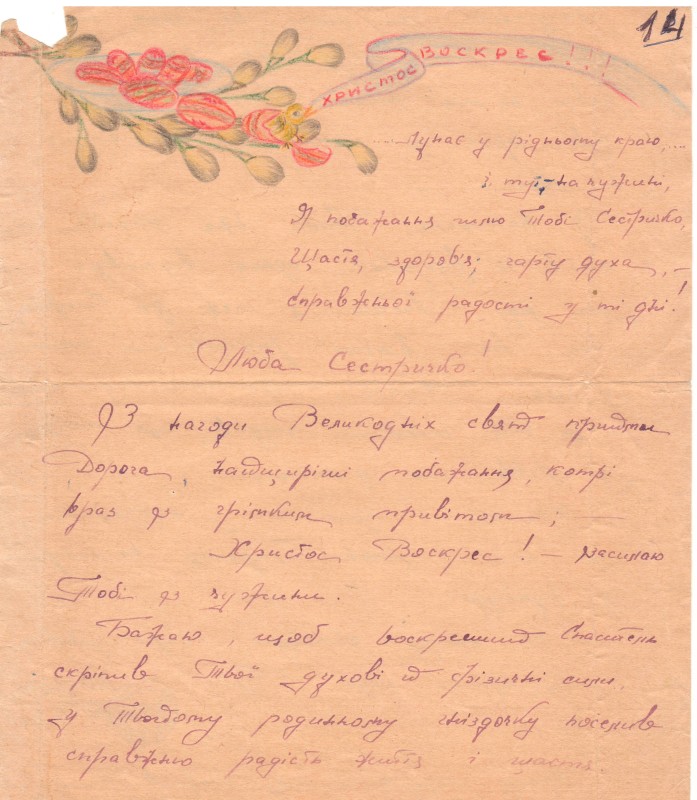 14
ХРИСТОС ВОСКРЕС!!!
.....Лунає у рідньому краю,....
і тут, на чужині,
Я побажання шлю Тобі Сестричко,
Щастя, здоров'я, гарту духа, –
Справжньої радости у ті дні!
Люба Сестричко!
З нагоди Великодніх свят прийми
Дорога, найщиріші побажання, котрі
враз із грімким привітом; –
Христос Воскрес! – засилаю
Тобі із чужини.
Бажаю, щоб воскресший Спаситель
скріпив Твої духові й фізичні сили,
у Твойому родинному гніздочку поселив
справжню радість життя і щастя.